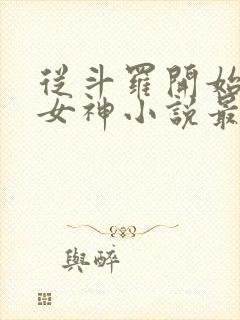 從斗羅開始
女神小說最
與醉